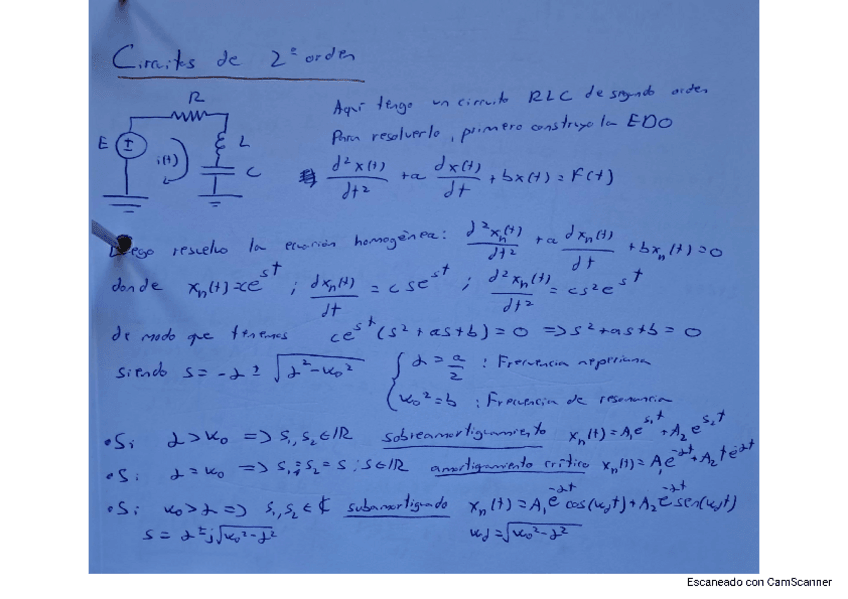 Circuitos de 2º orden
R
E
i(t)
L
C
Aquí tengo un circuito RLC de segundo orden
Para resolverlo, primero construyo la EDO
d²x(t)/dt² + a dx(t)/dt + bx(t) = F(t)
Luego resuelvo la ecuación homogénea: d²xₙ(t)/dt² + a dxₙ(t)/dt + bxₙ(t) = 0
donde xₙ(t) = ce^st ; dxₙ(t)/dt = cse^st ; d²xₙ(t)/dt² = cs²e^st
de modo que tenemos ce^st (s² + as + b) = 0 => s² + as + b = 0
siendo s = -α ± √(α² - ω₀²) { α = a/2 : Frecuencia neperiana
ω₀² = b : Frecuencia de resonancia
• Si α > ω₀ => s₁, s₂ ∈ ℝ sobreamortiguamiento xₙ(t) = A₁e^s₁t + A₂e^s₂t
• Si α = ω₀ => s₁ = s₂ = s ; s ∈ ℝ amortigamiento crítico xₙ(t) = A₁e^-αt + A₂te^-αt
• Si ω₀ > α => s₁, s₂ ∈ ℂ subamortiguado xₙ(t) = A₁e^-αt cos(ω_d t) + A₂e^-αt sen(ω_d t)
s = α ± j√(ω₀² - α²) ω_d = √(ω₀² - α²)
Escaneado con CamScanner